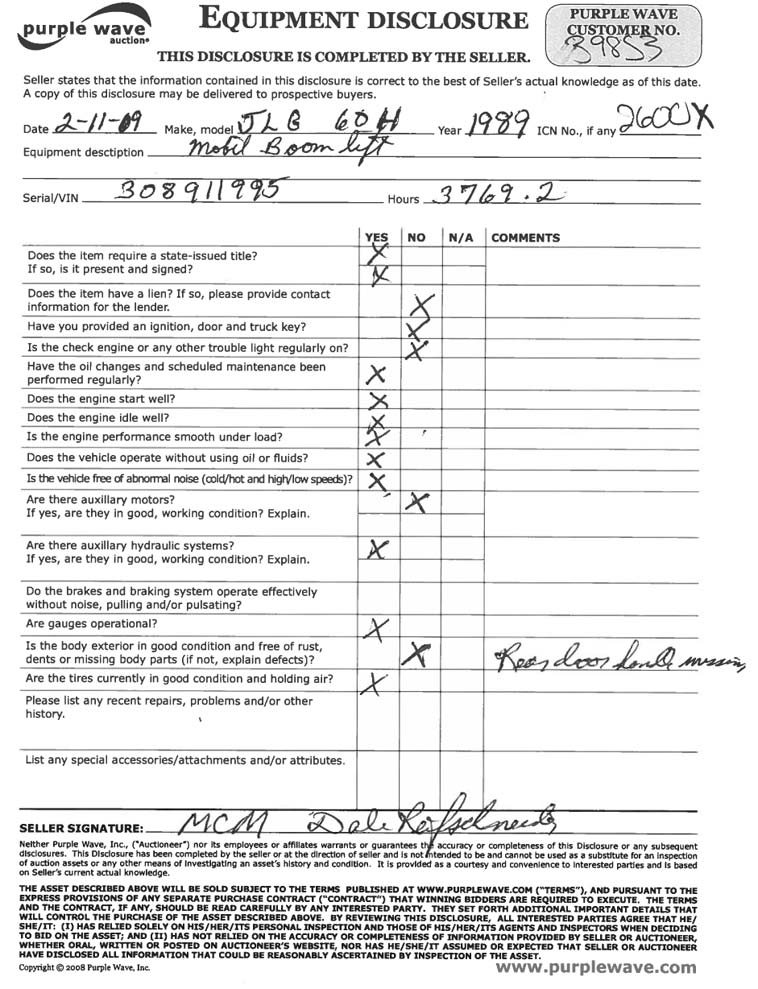 purple wave
auction
EQUIPMENT DISCLOSURE
PURPLE WAVE
CUSTOMER NO.
39853
THIS DISCLOSURE IS COMPLETED BY THE SELLER.
Seller states that the information contained in this disclosure is correct to the best of Seller's actual knowledge as of this date.
A copy of this disclosure may be delivered to prospective buyers.
Date 2-11-09 Make, model JLG 60H Year 1989 ICN No., if any
Equipment desctiption Mobil Boom lift
Serial/VIN 308911995 Hours 3769.2
YES NO N/A COMMENTS
Does the item require a state-issued title? X
If so, is it present and signed? X
Does the item have a lien? If so, please provide contact
information for the lender. X
Have you provided an ignition, door and truck key? X
Is the check engine or any other trouble light regularly on? X
Have the oil changes and scheduled maintenance been
performed regularly? X
Does the engine start well? X
Does the engine idle well? X
Is the engine performance smooth under load? X
Does the vehicle operate without using oil or fluids? X
Is the vehicle free of abnormal noise (cold/hot and high/low speeds)? X
Are there auxillary motors? X
If yes, are they in good, working condition? Explain.
Are there auxillary hydraulic systems? X
If yes, are they in good, working condition? Explain.
Do the brakes and braking system operate effectively
without noise, pulling and/or pulsating?
Are gauges operational? X
Is the body exterior in good condition and free of rust,
dents or missing body parts (if not, explain defects)? X Rear door handle missing
Are the tires currently in good condition and holding air? X
Please list any recent repairs, problems and/or other
history.
List any special accessories/attachments and/or attributes.
SELLER SIGNATURE: MCM Dale Reifschneider
Neither Purple Wave, Inc., ("Auctioneer") nor its employees or affiliates warrants or guarantees the accuracy or completeness of this Disclosure or any subsequent
disclosures. This Disclosure has been completed by the seller or at the direction of seller and is not intended to be and cannot be used as a substitute for an inspection
of auction assets or any other means of investigating an asset's history and condition. It is provided as a courtesy and convenience to interested parties and is based
on Seller's current actual knowledge.
THE ASSET DESCRIBED ABOVE WILL BE SOLD SUBJECT TO THE TERMS PUBLISHED AT WWW.PURPLEWAVE.COM ("TERMS"), AND PURSUANT TO THE
EXPRESS PROVISIONS OF ANY SEPARATE PURCHASE CONTRACT ("CONTRACT") THAT WINNING BIDDERS ARE REQUIRED TO EXECUTE. THE TERMS
AND THE CONTRACT, IF ANY, SHOULD BE READ CAREFULLY BY ANY INTERESTED PARTY. THEY SET FORTH ADDITIONAL IMPORTANT DETAILS THAT
WILL CONTROL THE PURCHASE OF THE ASSET DESCRIBED ABOVE. BY REVIEWING THIS DISCLOSURE, ALL INTERESTED PARTIES AGREE THAT HE/
SHE/IT: (I) HAS RELIED SOLELY ON HIS/HER/ITS PERSONAL INSPECTION AND THOSE OF HIS/HER/ITS AGENTS AND INSPECTORS WHEN DECIDING
TO BID ON THE ASSET; AND (II) HAS NOT RELIED ON THE ACCURACY OR COMPLETENESS OF INFORMATION PROVIDED BY SELLER OR AUCTIONEER,
WHETHER ORAL, WRITTEN OR POSTED ON AUCTIONEER'S WEBSITE, NOR HAS HE/SHE/IT ASSUMED OR EXPECTED THAT SELLER OR AUCTIONEER
HAVE DISCLOSED ALL INFORMATION THAT COULD BE REASONABLY ASCERTAINED BY INSPECTION OF THE ASSET.
Copyright © 2008 Purple Wave, Inc. www.purplewave.com